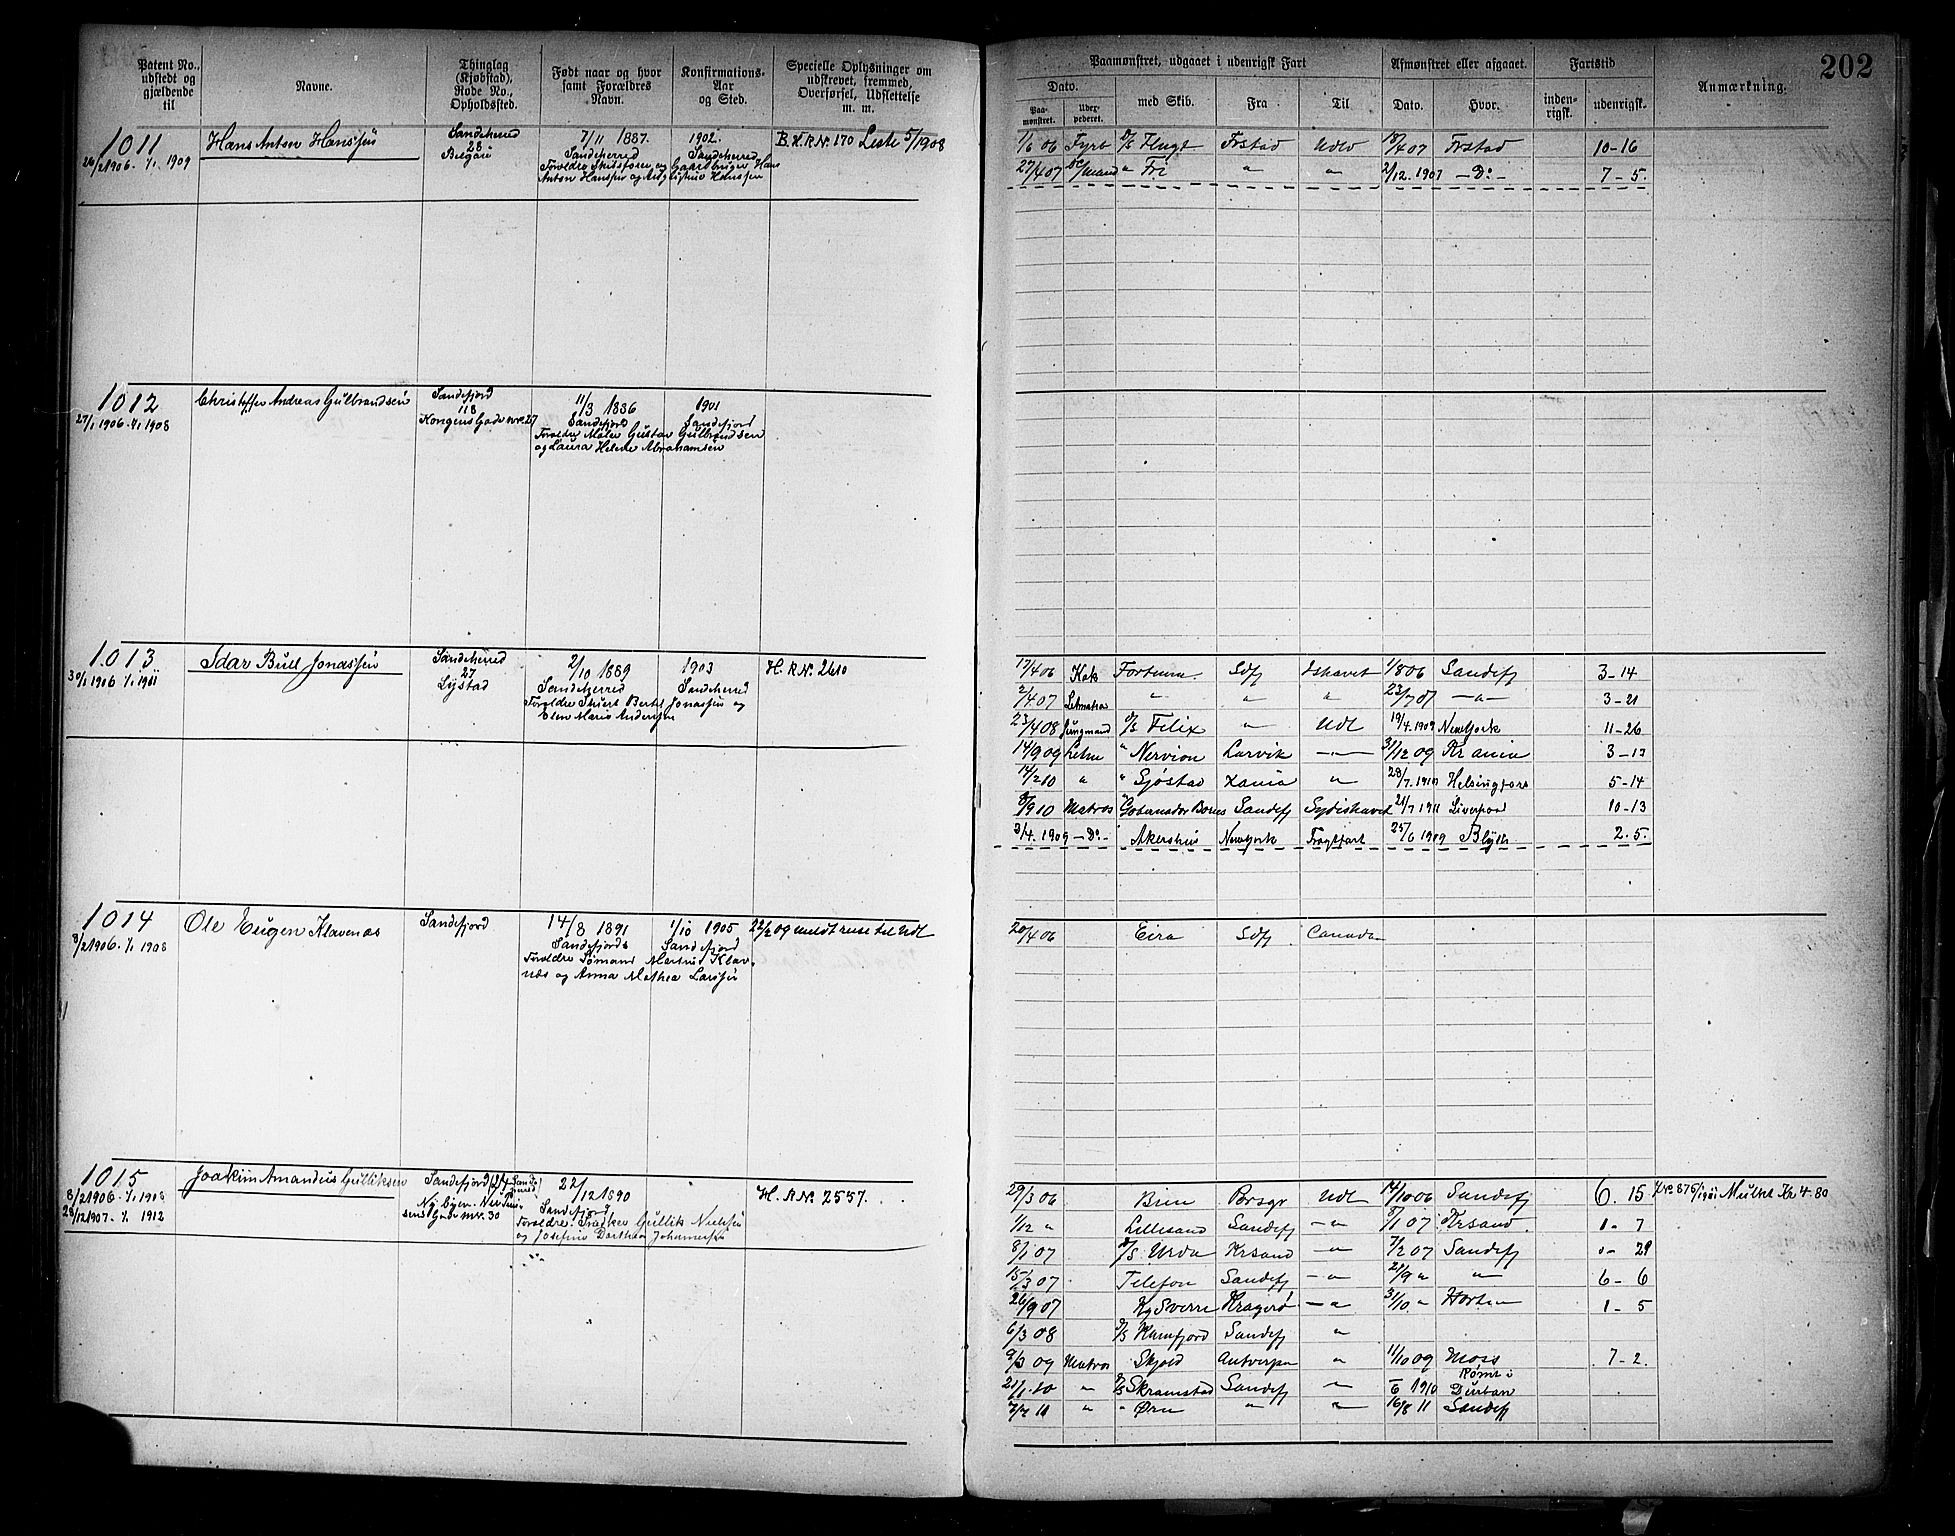 202
Patent No., udstedt og gjældende til
Navne.
Thinglag (Kjøbstad), Rode No., Opholdssted.
Født naar og hvor samt Forældres Navn.
Konfirmations-Aar og Sted.
Specielle Oplysninger om udskrevet, fremmed, Overførsel, Udslettelse m. m.
Paamønstret, udgaaet i udenrigsk Fart
Afmønstret eller afgaaet.
Fartstid
Anmærkning.
Dato.
Paa-mønstret.
med Skib.
Fra
Til
Dato.
Hvor.
inden-rigsk.
udenrigsk.
1011
26/2 1906 - 1/1 1909
Hans Anton Hanssen
Sandeherred
28
7/11 1887.
Sandeherred
1902.
Sandeherred
B. H. R. No. 170 Leste 5/1908
Anton Hanssen og
1/6 06 Fyrb D/S Fluge Frstad Udl 18/4 07 Frstad 10-16
27/4 07 " Fri " " 2/12 1907 - Do - 7-5.
1012
27/1 1906 - 1/1 1908
Christoffer Andreas Gulbrandsen
Sandefjord
118
Kongens Gade nr. 27
11/3 1886
Sandefjord
Forældre Maler Gustav Gulbrandsen
og Laura Helene Abrahamsen
1901
Sandefjord
1013
30/1 1906 1/1 1911
Idar Bull Jonassen
Sandeherred
27
Lystad
2/10 1889
Sandeherred
Forældre Stuert Bertil Jonassen og
Elen Marie Andersen
1903
Sandeherred
H. R. No. 2610
17/4 06 Kok Fortuna Sdfj Ishavet 1/8 06 Sandefj 3-14
2/4 07 Letmatros " " " 23/7 07 - " - 3-21
23/4 08 Jungmand D/S Felix " Udl 19/4 1909 NewYork 11-26
14/9 09 Letm " Nervion Larvik - " - 31/12 09 Krania 3-17
14/2 10 " " Sjøstad Xania " 28/7 1910 Helsingfors 5-14
8/9 10 Matros " Gobernador Bories Sandefj Sydishavet 21/7 1911 Liverpool 10-13
3/4 1909 - Do - Akershus NewYork Fragtfart 25/6 1909 Blyth 2.5.
1014
8/2 1906. 1/1 1908
Ole Eugen Klavenæs
Sandefjord
14/8 1891
Sandefjord
Forældre Sømand Martin Klav-
næs og Anna Mathea Larssen
1/10 1905
Sandefjord
22/2 09 meldt reise til Udl
20/4 06 Eira Sdfj Canada
1015
8/2 1906. 1/1 1908
28/12 1907. 1/1 1912
Joakim Amandus Gulliksen
Sandefjord
Nybyen
Gade nr. 30
22/12 1890
Sandefjord
Forældre: Gullik Nielsen
og Josefine Dorthea Johannessen
H. R. No. 2557.
29/3 06 Bien Porsgr Udl 14/10 06 Sandefj 6. 15
1/12 " Lillesand Sandefj - " 8/1 07 Krsand. 1-7
8/1 07 D/S. Urda Krsand - " 7/2 07 Sandefj 0-29
15/3 07 Telefon Sandefj - " 21/9 " " 6-6
26/9 07 Kg Sverre Kragerø - " 31/10 " Horten 1-5
6/3 08 D/S Kamfjord Sandefj "
9/3 09 Matros Skjold Antverpen " 11/10 09 Moss 7-2.
21/1. 10 " D/S Skramstad Sandefj " 1910 Rømt i Durban
7/7 11 " " Ørn " " 16/8 11 Sandefj